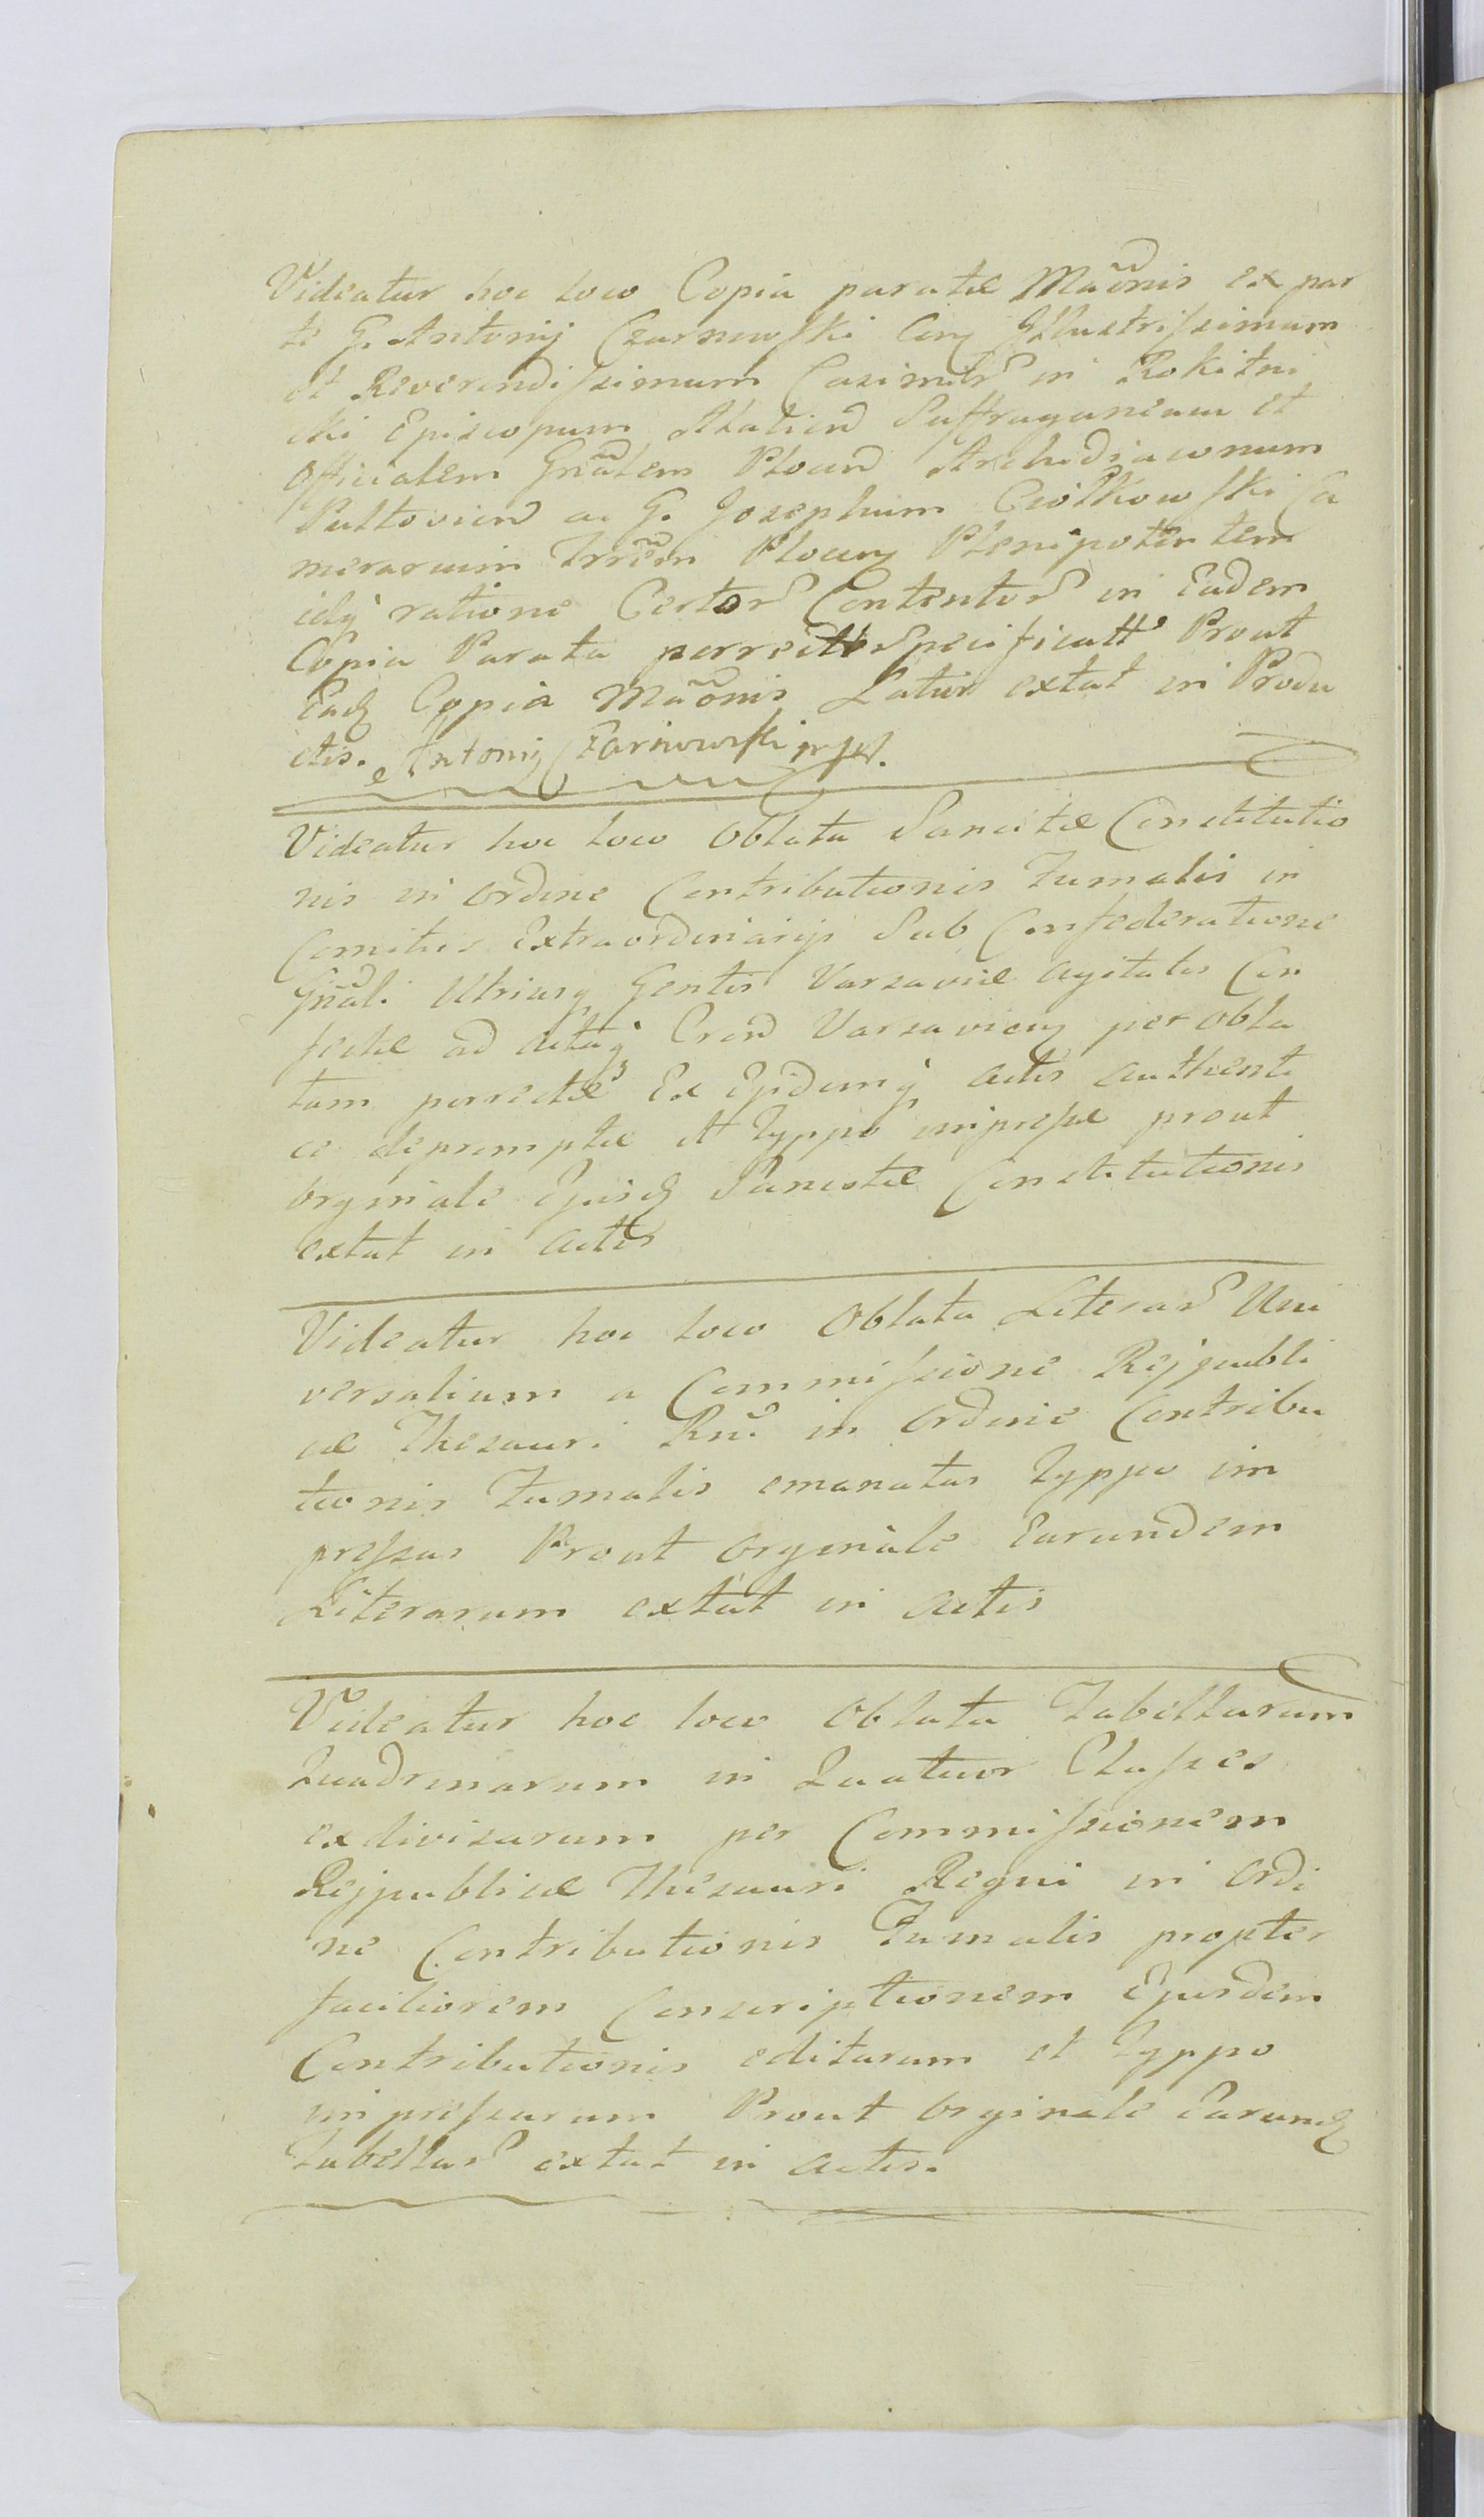 Videatur hoc loco Copia paratæ Mãonis ex par
te G. Antonij Czarnowski Cong Illustrissimum
et Reverendissimum Casimir in Rokitni
cki Episcopum Suffraganeum et
Officialem Gnãlem Plocen Archidiaconum
Pultovien ac G. Josephum Ciołkowski Ca
merarium Trrẽm Plocen Plenipotentem
idq ratione Certor Contentor in Eadem
Copia Parata perrectæ Specificatt Prout
Eadz Copia Mãonis Latior extat in Produ
ctis. Antonij Czarnowski mp
Videatur hoc loco Oblata Sancitæ Constitutio
nis in ordine Contributionis Fumalis in
Comitiis Extraordinarijs Sub Confederatione
Gñali Utriusq Gentis Varsaviæ agitatis Con
fectæ ad acta Cren Varsavien per obla
tam porrectæ Ex Ejsdemq actis authenti
ce depromptæ et Typpo impressæ prout
orginale Ejusdz Sancitæ Constitutionis
extat in actis
Videatur hoc loco Oblata Literar Uni
versalium a Commissione Rejpubli
cæ Thesauri Rni in ordine Contribu
tionis Fumalis emanatar Typpo im
pressar Prout orginale Earundem
Literarum extat in actis
Videatur hoc loco Oblata Tabellarum
Quadrinarum in Quatuor Classes
exdivisarum per Commissionem
Rejpublicæ Thesauri Regni in ordi
ne Contributionis Fumalis propter
faciliorem Conscriptionem Ejusdem
Contributionis editarum et Typpo
impressarum Prout orginale Earundz
Tabellar extat in actis.